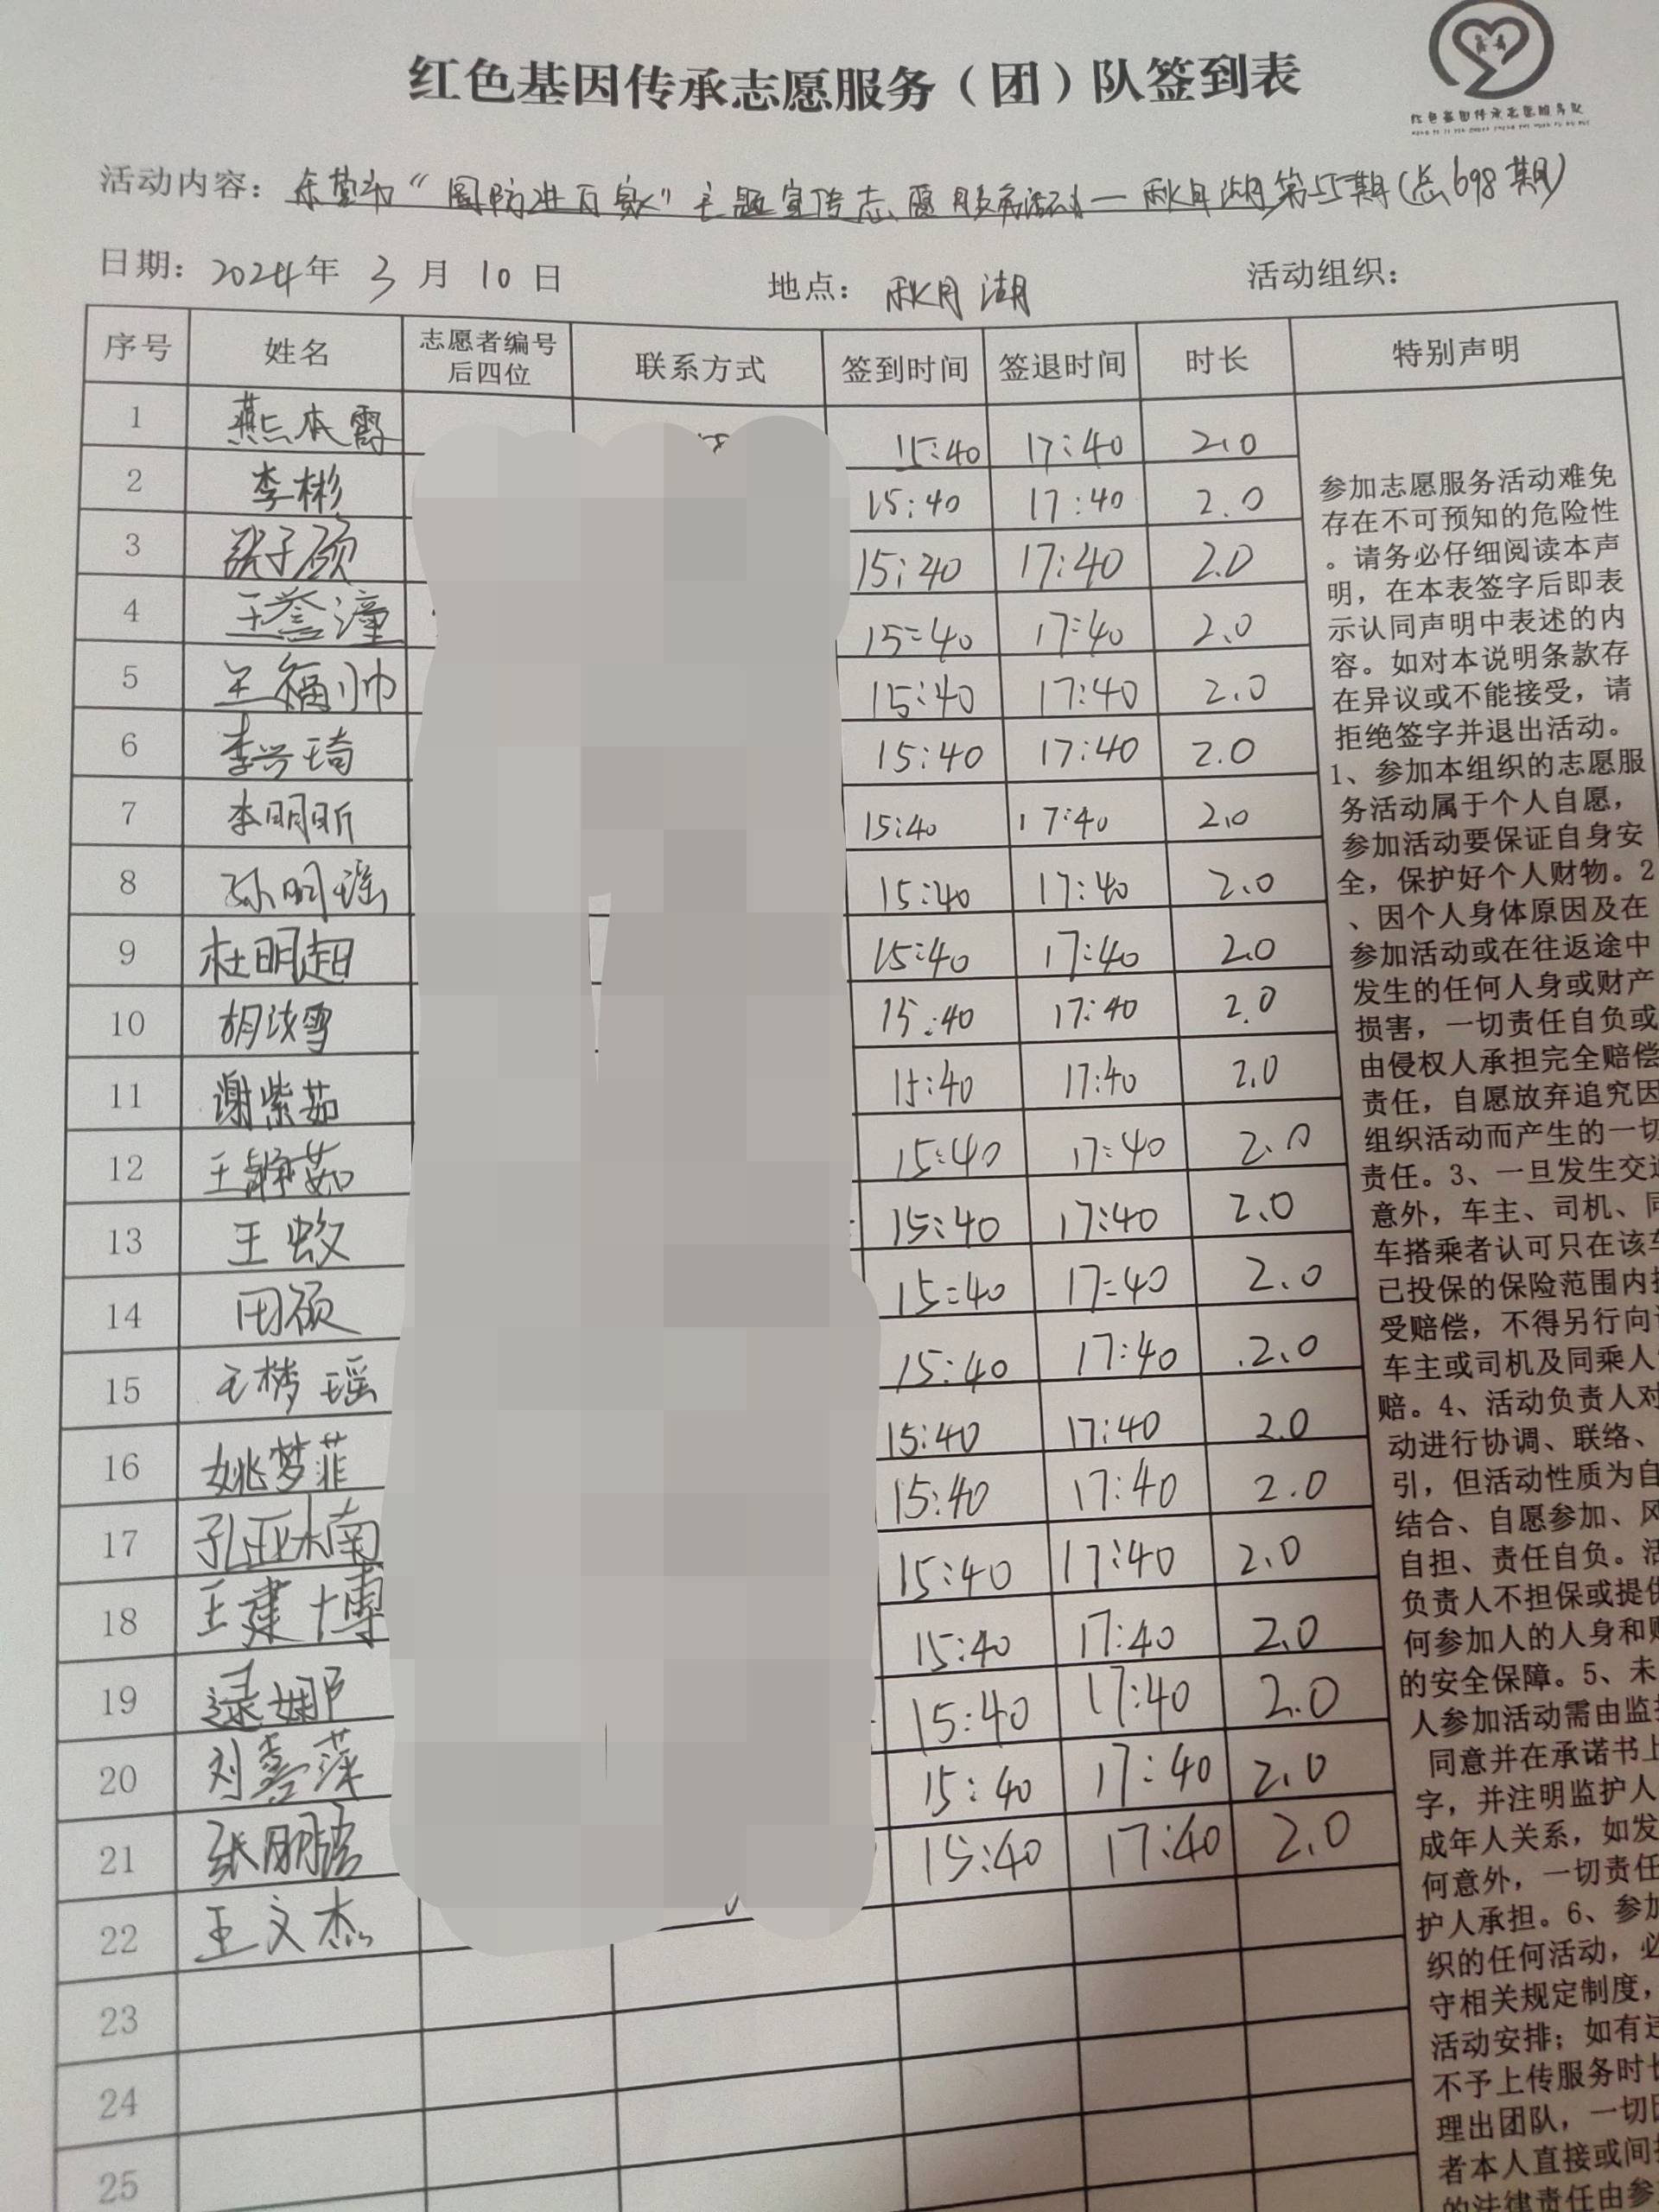 红色基因传承志愿服务（团）队签到表
红色基因传承志愿服务队
活动内容：东营市“国防进百家”主题宣传志愿服务活动—秋月湖第55期(总698期)
日期：2024年 3月 10日 地点：秋月湖 活动组织：
序号 姓名 志愿者编号后四位 联系方式 签到时间 签退时间 时长 特别声明
1 燕本霞 15:40 17:40 2.0
2 李彬 15:40 17:40 2.0
3 张子硕 15:40 17:40 2.0
4 王誉潼 15:40 17:40 2.0
5 王福帅 15:40 17:40 2.0
6 李兴琦 15:40 17:40 2.0
7 李明昕 15:40 17:40 2.0
8 孙明瑶 15:40 17:40 2.0
9 杜明超 15:40 17:40 2.0
10 胡 雪 15:40 17:40 2.0
11 谢紫茹 15:40 17:40 2.0
12 王静茹 15:40 17:40 2.0
13 王蛟 15:40 17:40 2.0
14 田硕 15:40 17:40 2.0
15 王梦瑶 15:40 17:40 2.0
16 姚梦菲 15:40 17:40 2.0
17 孔亚楠 15:40 17:40 2.0
18 王建博 15:40 17:40 2.0
19 逯娜 15:40 17:40 2.0
20 刘喜萍 15:40 17:40 2.0
21 张鹏 15:40 17:40 2.0
22 王文杰
23
24
25
参加志愿服务活动难免
存在不可预知的危险性
。请务必仔细阅读本声
明，在本表签字后即表
示认同声明中表述的内
容。如对本说明条款存
在异议或不能接受，请
拒绝签字并退出活动。
1、参加本组织的志愿服
务活动属于个人自愿，
参加活动要保证自身安
全，保护好个人财物。2
、因个人身体原因及在
参加活动或在往返途中
发生的任何人身或财产
损害，一切责任自负或
由侵权人承担完全赔偿
责任，自愿放弃追究因
组织活动而产生的一切
责任。3、一旦发生交通
意外，车主、司机、同
车搭乘者认可只在该车
已投保的保险范围内接
受赔偿，不得另行向
车主或司机及同乘人
赔。4、活动负责人对
动进行协调、联络、
引，但活动性质为自
结合、自愿参加、风
自担、责任自负。活
负责人不担保或提供
何参加人的人身和财
的安全保障。5、未
人参加活动需由监护
同意并在承诺书上
字，并注明监护人
成年人关系，如发
何意外，一切责任
护人承担。6、参加
织的任何活动，必
守相关规定制度，
活动安排；如有违
不予上传服务时长
理出团队，一切
者本人直接或间接
的法律责任由参